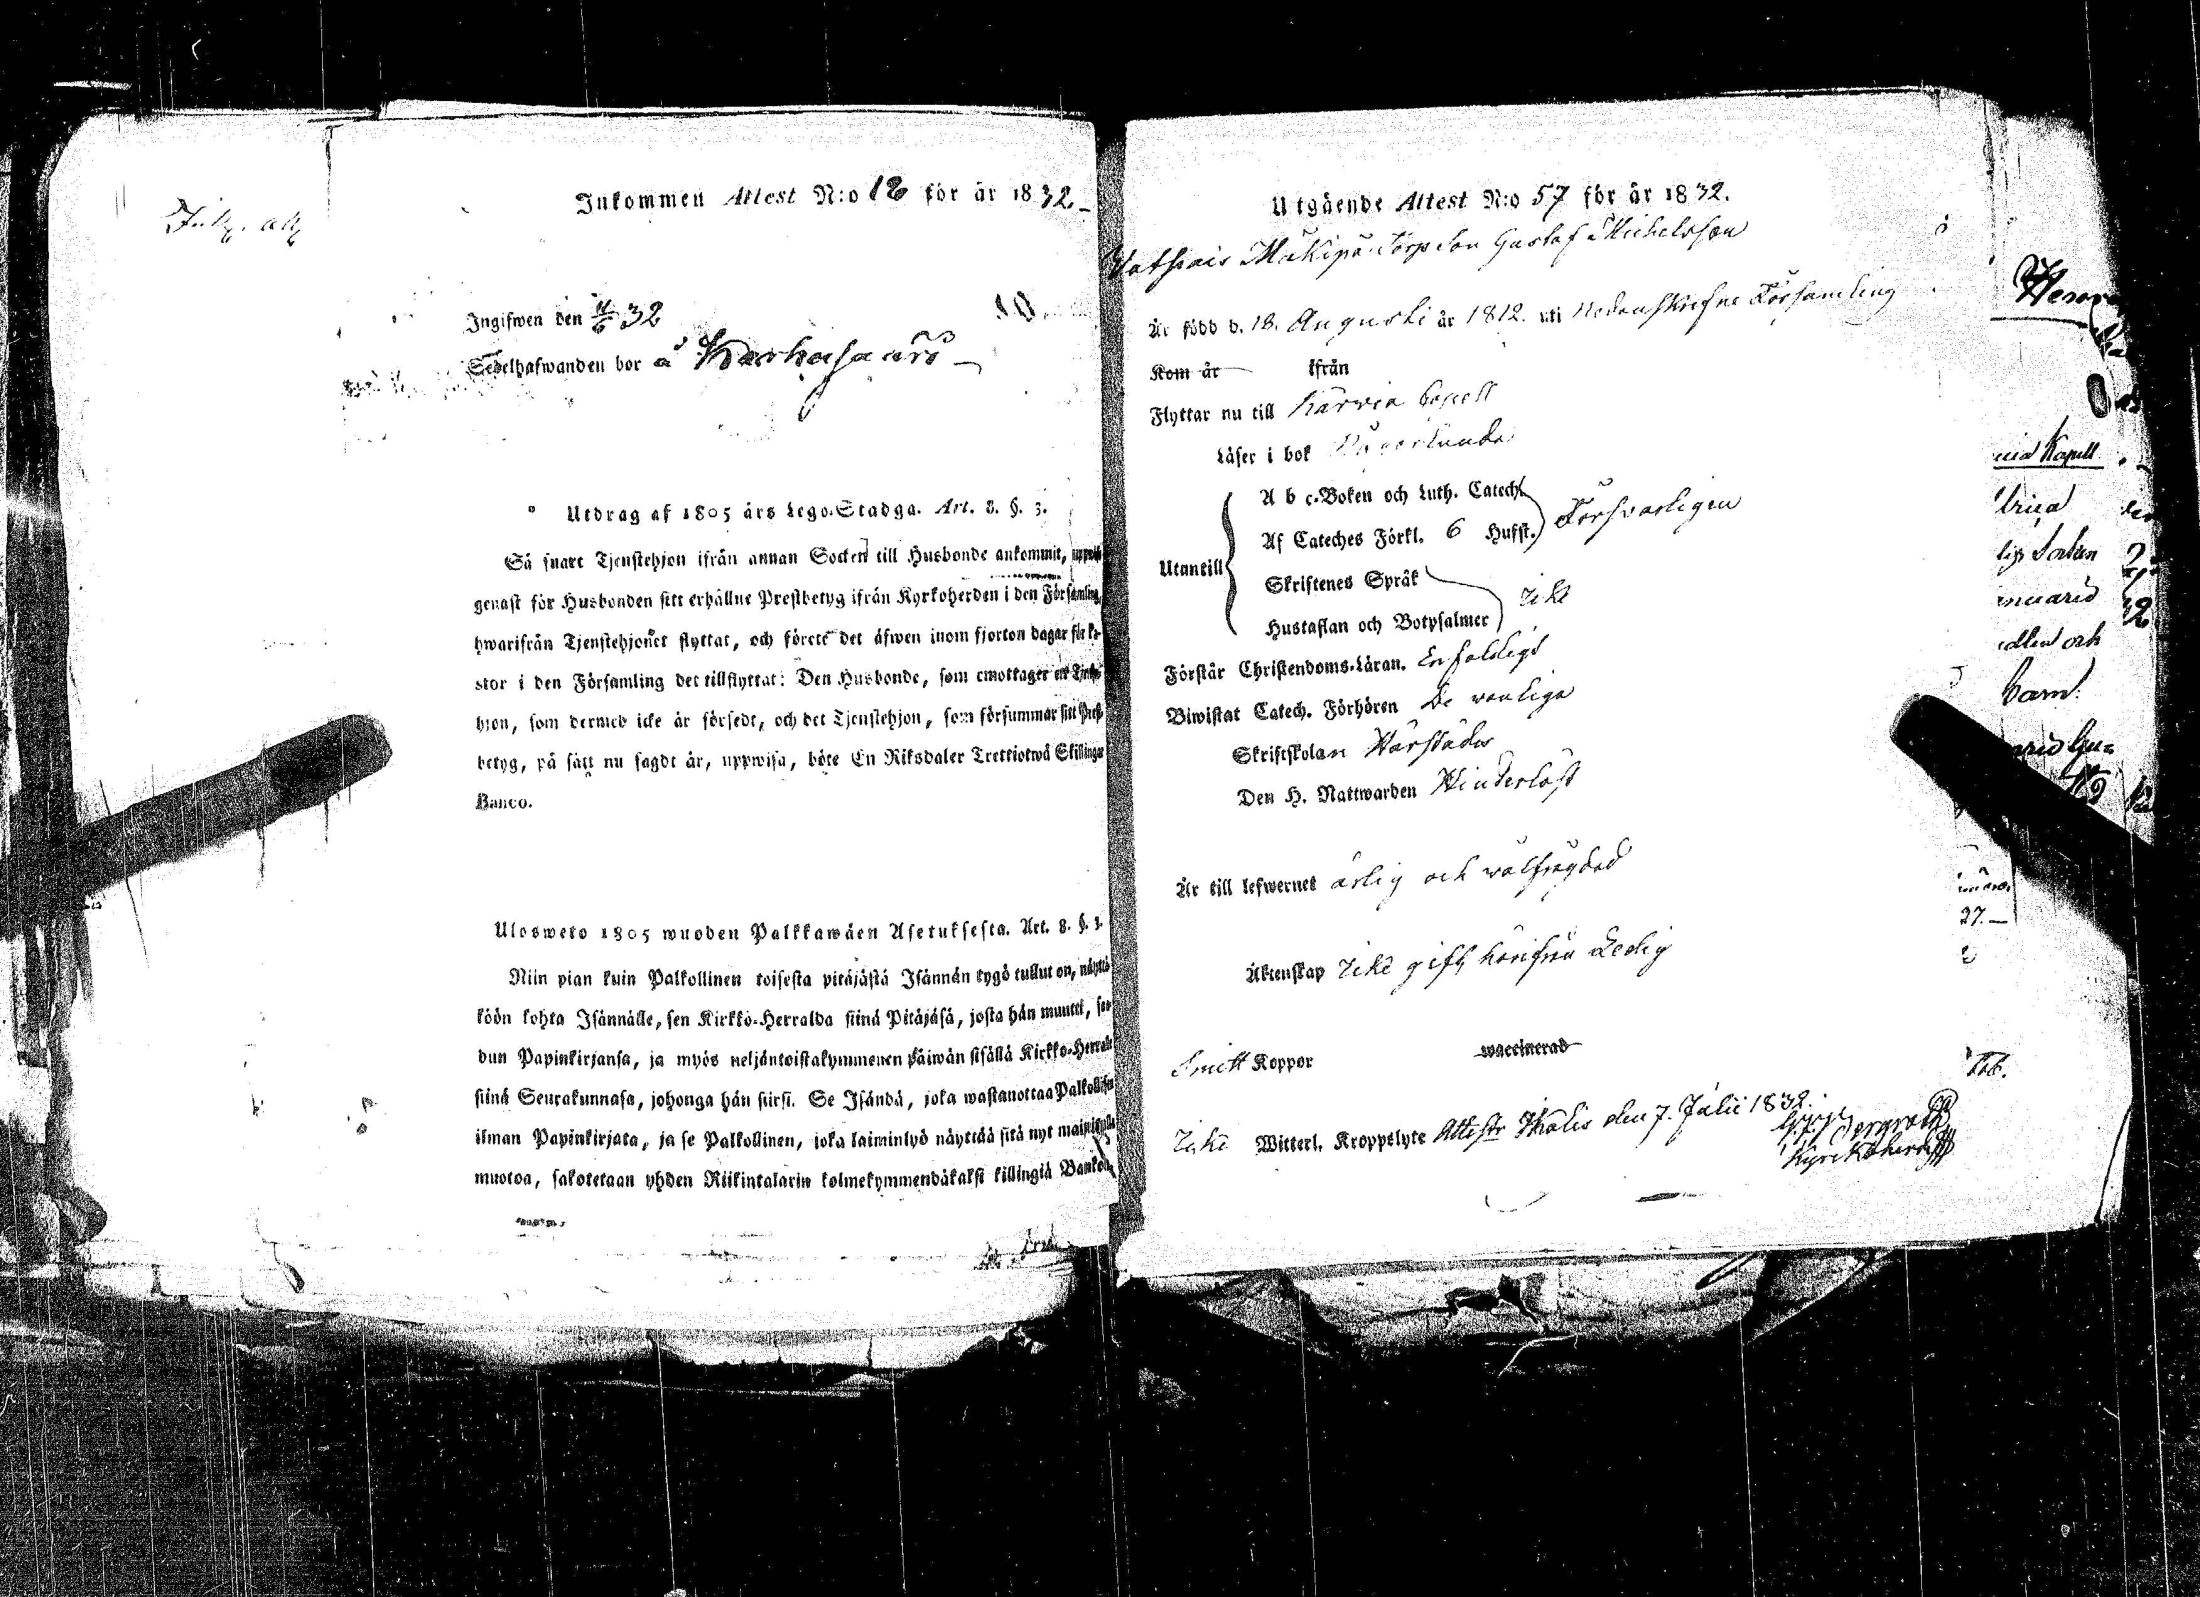 Inkommen Attest N:o 18 för år 1832.
Ink. att
Ingifwen den 32
Sedelhafwanden bor å Karhusaari
Utdrag af 1805 års Lego-Stadga. Art. 8. §. 3.
Så snart Tjenstehjon ifrån annan Socken till Husbonde ankommit,
genast för Husbonden sitt erhållne Prestbetyg ifrån Kyrkoherden i den Församling,
hwarifrån Tjenstehjonet flyttat, och förete det äfwen inom fjorton dagar för
stor i den Församling det tillflyttat: Den Husbonde, som emottager ett
hjon, som dermed icke är försedt, och det Tjenstehjon, som försummar sitt Prest-
betyg, på sätt nu sagdt är, uppwisa, böte En Riksdaler Trettiotwå Skillingar
Banco.
Ulosweto 1805 wuoden Palkkawäen Asetuksesta. Art. 8. §. 3.
Niin pian kuin Palkollinen toisesta pitäjästä Isännän tygö tullut on, näyttä-
köön kohta Isännälle, sen Kirkko-Herralda siinä Pitäjäsä, josta hän muutti, saa-
dun Papinkirjansa, ja myös neljäntoistakymmenen päiwän sisällä Kirkko-Herralle
siinä Seurakunnasa, johonga hän siirsi. Se Isändä, joka wastanottaa Palkollisen
ilman Papinkirjata, ja se Palkollinen, joka laiminlyö näyttää sitä nyt mainitulla
muotoa, sakotetaan yhden Riikintalarin kolmekymmendäkaksi killingiä Bankos.
Utgående Attest N:o 57 för år 1832.
Mäkipä Torp Son Gustaf Michelsson
Är född d. 18. Augusti år 1812. uti Nedanskrifne Församling
Kom år ifrån
Flyttar nu till Karvia Capell
Läser i bok
Utantill
A b c-Boken och Luth. Catech.
Af Cateches Förkl. 6 Hufst. Försvarligen
Skriftenes Språk
Hustaflan och Botpsalmer Icke
Förstår Christendoms-Läran. Enfaldigt
Biwistat Catech. Förhören De vanliga
Skriftskolan Härstädes
Den H. Nattwarden Hinderlöst
Är till lefwernet ärlig och wälfrägdad
Äktenskap Icke gift, härifrån Ledig
Smitt Koppor waccinerad
Icke Witterl. Kroppslyte Attestr Ikalis den 7. Julii 1832.
Bergroth
Kyrkoherde
Kapell
och
barn.
27.